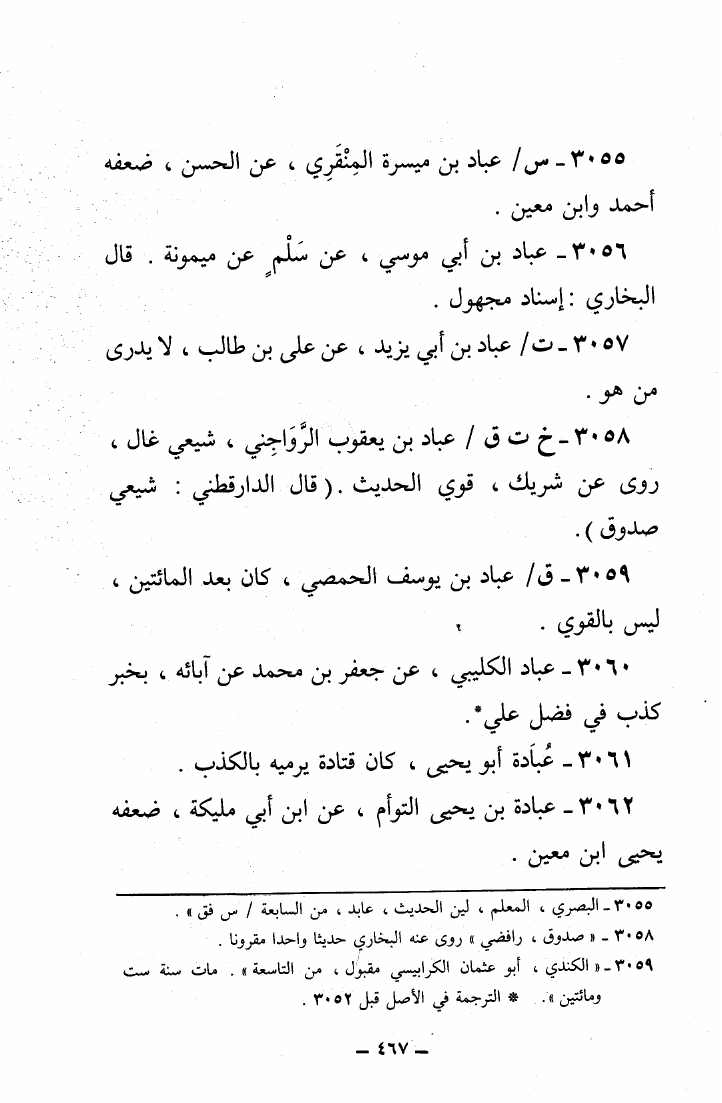 ٣٠٥٥ ـ س/ عباد بن ميسرة المِنْقَرِي ، عن الحسن ، ضعفه
أحمد وابن معين .
٣٠٥٦ ـ عباد بن أبي موسي ، عن سَلْمٍ عن ميمونة . قال
البخاري : إسناد مجهول .
٣٠٥٧ ـ ت/ عباد بن أبي يزيد ، عن على بن طالب ، لا يدرى
من هو .
٣٠٥٨ ـ خ ت ق / عباد بن يعقوب الرَّوَاجِني ، شيعي غال ،
روى عن شريك ، قوي الحديث . ( قال الدارقطني : شيعي
صدوق ) .
٣٠٥٩ ـ ق/ عباد بن يوسف الحمصي ، كان بعد المائتين ،
ليس بالقوي .
٣٠٦٠ ـ عباد الكليبي ، عن جعفر بن محمد عن آبائه ، بخبر
كذب في فضل علي* .
٣٠٦١ ـ عُبَادة أبو يحيى ، كان قتادة يرميه بالكذب .
٣٠٦٢ ـ عبادة بن يحيى التوأم ، عن ابن أبي مليكة ، ضعفه
يحيى ابن معين .
٣٠٥٥ ـ البصري ، المعلم ، لين الحديث ، عابد ، من السابعة / س فق » .
٣٠٥٨ ـ « صدوق ، رافضي » روى عنه البخاري حديثا واحدا مقرونا .
٣٠٥٩ ـ « الكندي ، أبو عثمان الكرابيسي مقبول ، من التاسعة » . مات سنة ست
ومائتين » . * الترجمة في الأصل قبل ٣٠٥٢ .
ـ ٤٦٧ ـ